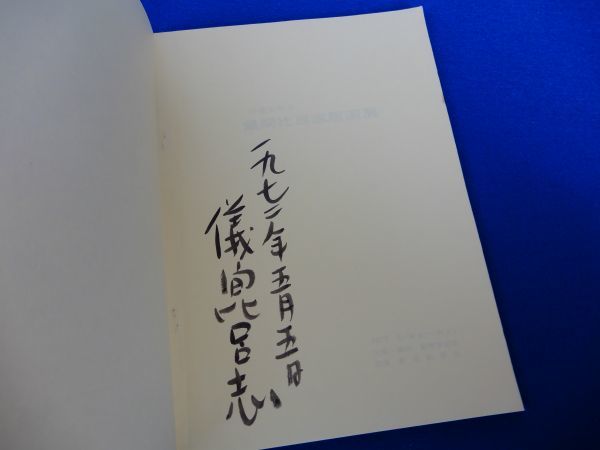 一九七二年五月五日
儀間比呂志